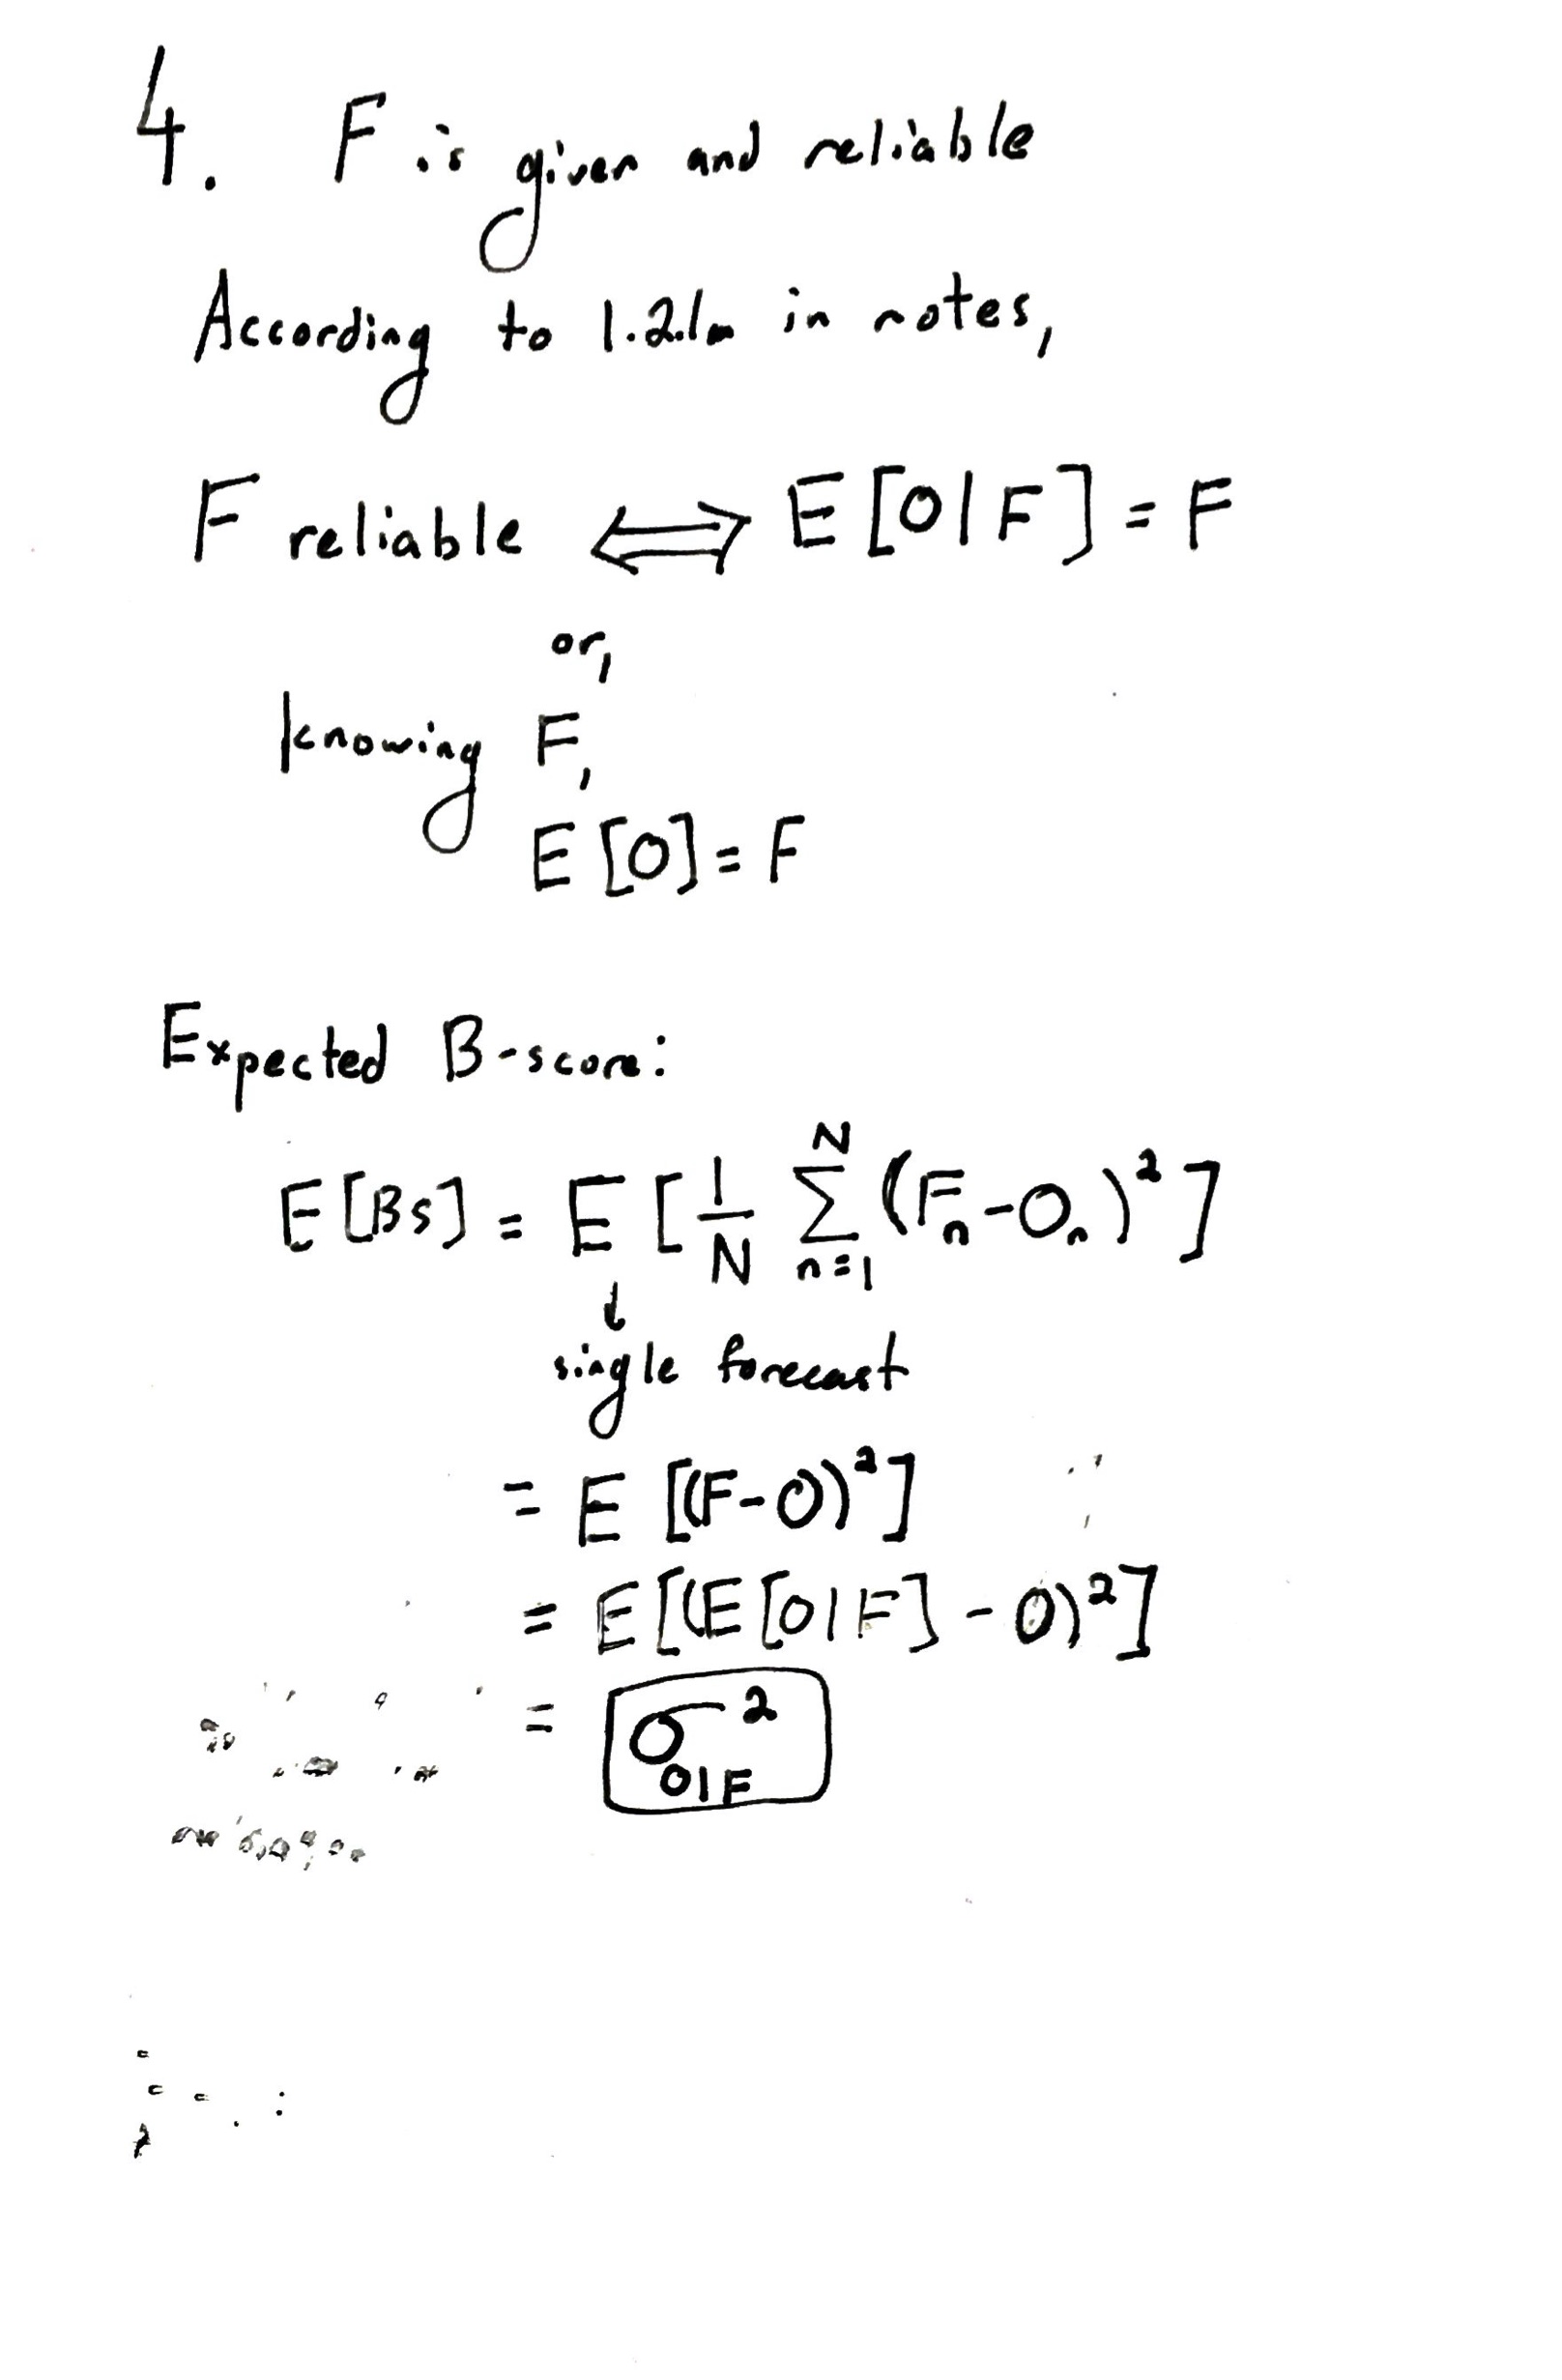 4. F is given and reliable
According to 1.2.1m in notes,
F reliable ⟺ E[O|F] = F
or,
knowing F,
E[O] = F
Expected B-score:
E[BS] = E[1/N ∑_{n=1}^{N} (F_n - O_n)²]
single forecast
= E[(F-O)²]
= E[(E[O|F] - O)²]
= σ²_{O|F}